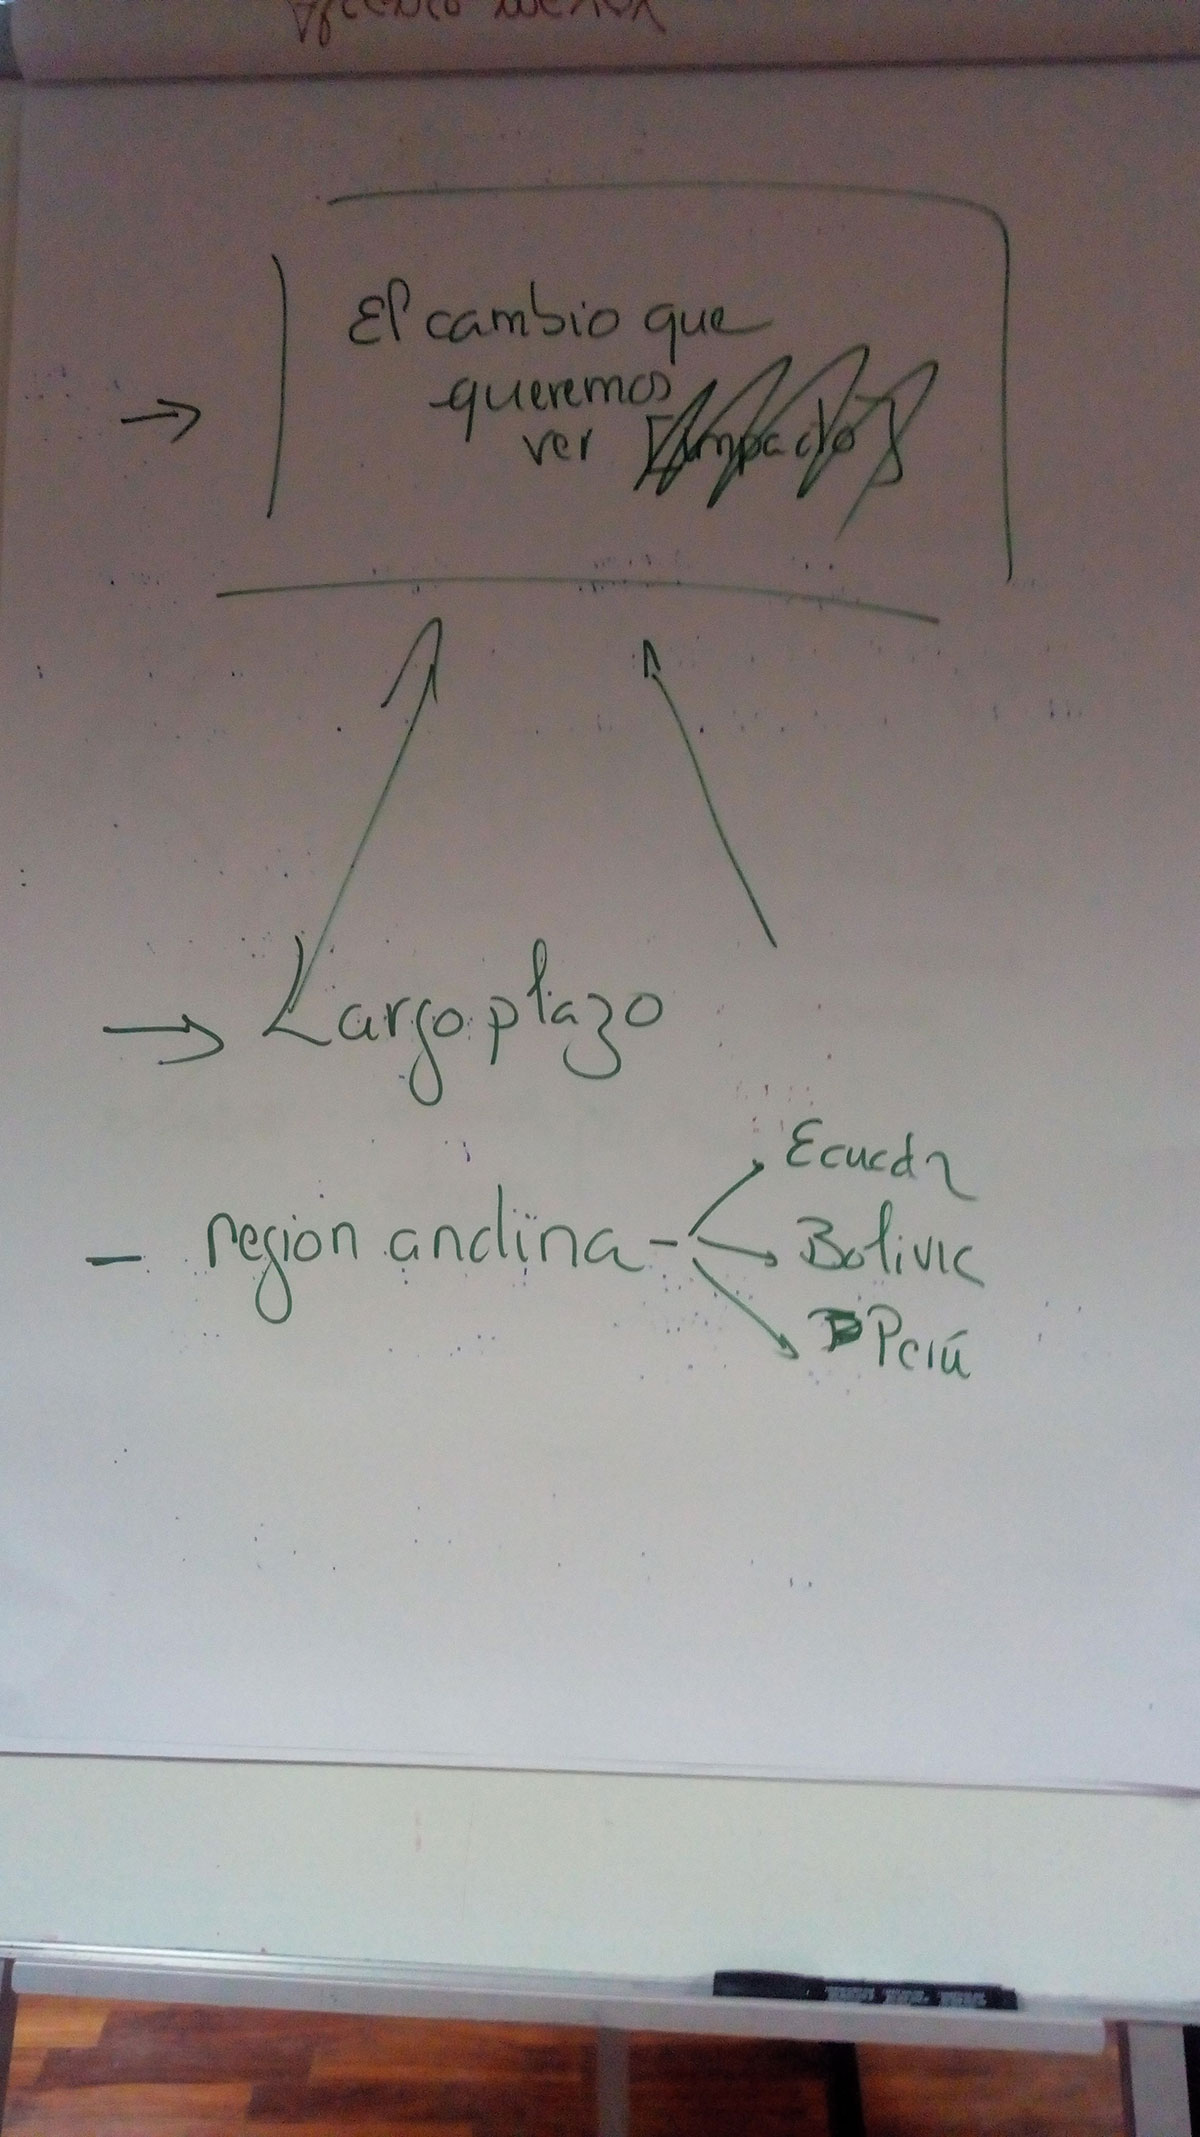 El cambio que
queremos
ver [impacto]
Largo plazo
region andina
Ecuador
Bolivia
Perú